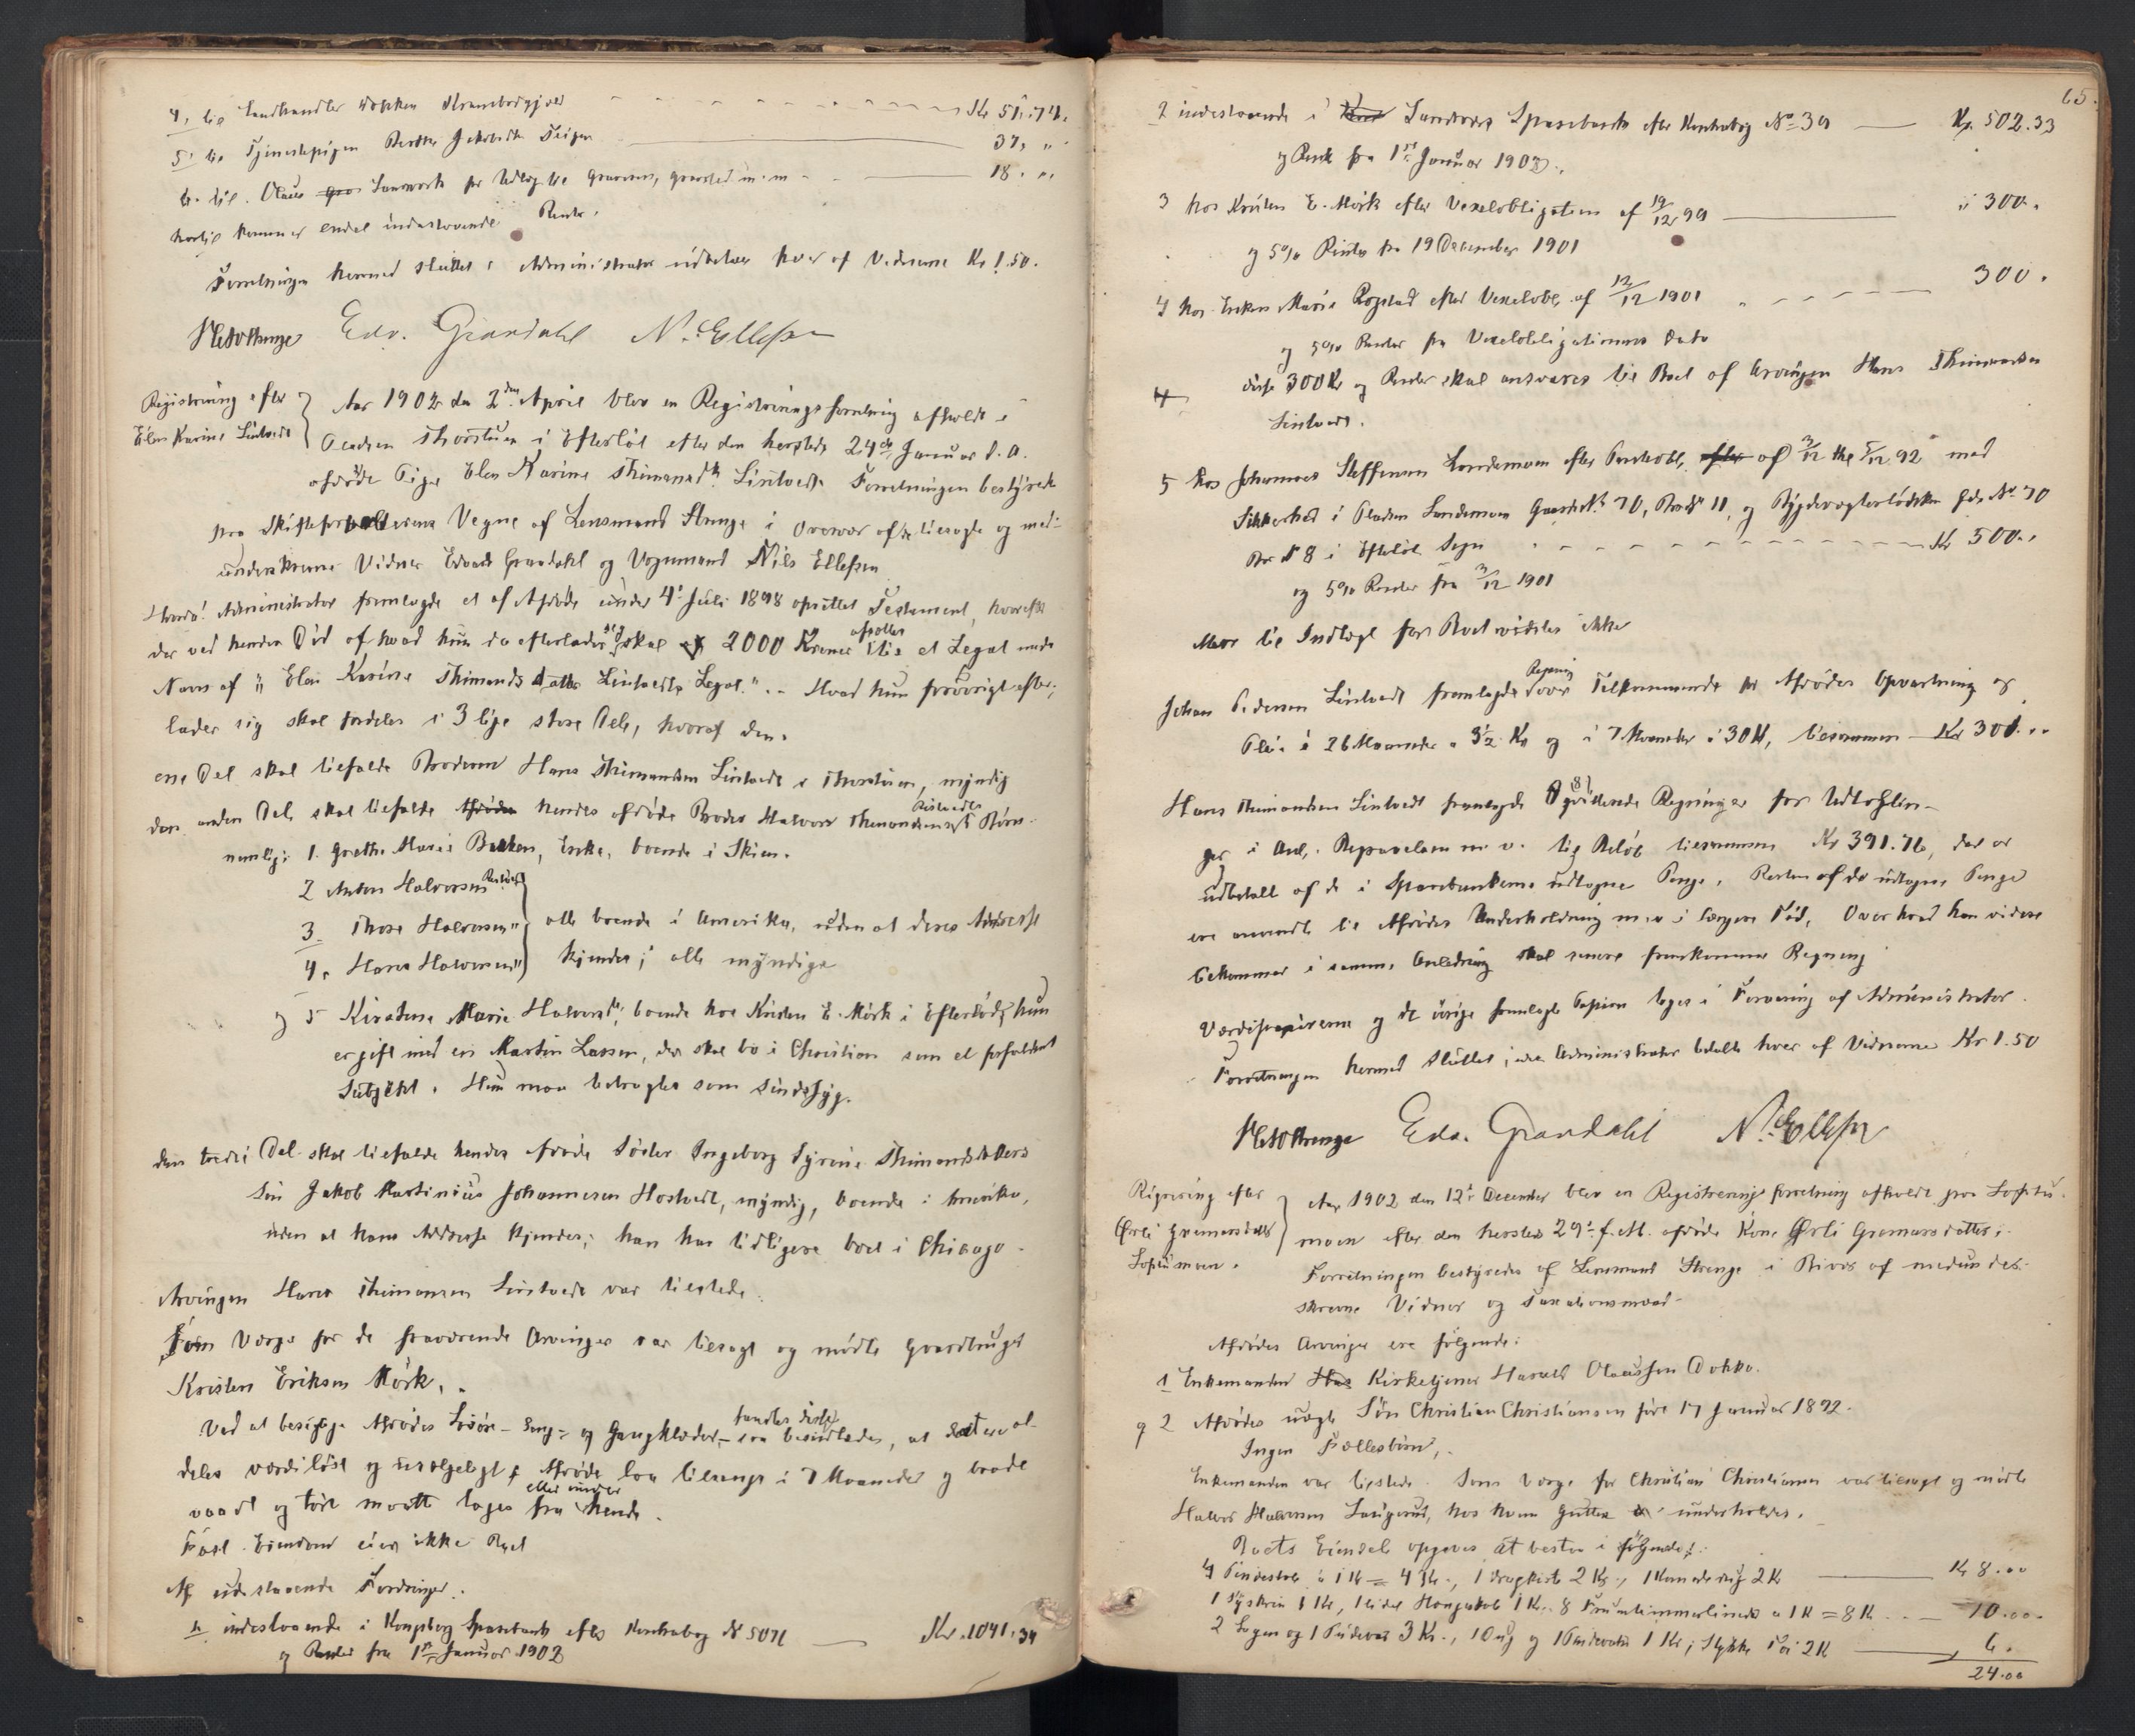 4, til Landhandler Kr 51.74.
5: til Tjenestepigen 37, "
6. til Olaus Landwerk for Udlæg til Gravøl, m. m 18. "
hertil kommer endel indestaaende Renter.
Forretningen hermed sluttet; Administrator udbetaler hver af Vidnerne Kr 1.50.
Edv. Grandahl N. Ellefsen
Registrering efter
Elen Karine Lintvedt
Aar 1902 den 2den April blev en Registreringsforretning afholdt i
Pladsen Thorstuen i Efterløt efter den hersteds 24de Januar d. A.
afdøde Pige Elen Karine Thimansdtr Lintvedt. Forretningen bestyredes
paa Skifteforvalterens Vegne af Lensmand Strenge i Overvær af de tilsagte og med-
underskrevne Vidner Edvard Grandahl og Vognmand Nils Ellefsen
Administrator fremlagde et af Afdøde under 4de Juli 1898 oprettet Testament, hvorefter
der ved hendes Død af hvad hun da efterlader sig skal 2000 Kroner afsættes til et Legat under
Navn af "Elen Karine Thimandsdatter Lintvedts Legat." - Hvad hun forøvrigt efter-
lader sig skal fordeles i 3 lige store Dele, hvoraf den
ene Del skal tilfalde Broderen Hans Thimandsen Lintvedt i Thorstuen, myndig
den anden Del skal tilfalde Afdøde hendes afdøde Broder Halvor Thimandsens Børn
nemlig: 1. Grethe Marie Bakken, Enke, boende i Skien.
2 Anton Halvorsen
3. Thore Halvorsen "
4, Hans Halvorsen "
alle boende i Amerika, uden at deres Adresse
kjendes; alle myndige
og 5 Kirstine Marie Halvorsdtr, boende hos Kristen E. Mörk i Efterløt, hun
er gift med en Martin Larsen, der skal bo i Christiania som et forfaldent
Subjekt. Hun maa betragtes som sindssyg.
den tredie Del skal tilfalde hendes afdøde Søster Ingeborg Syrine Thimandsdatters
Søn Jakob Martinius Johannesen Hostvedt, myndig, boende i Amerika,
uden at hans Addresse kjendes; han har tidligere boet i Chicago.
Arvingen Hans Thimansen Lintvedt var tilstede.
Som Værge for de fraværende Arvinger var tilsagt og mødte Gaardbruger
Kristen Eriksen Mörk.
Ved at besigtige Afdødes Løsøre - Seng- og Gangklæder, at det er al-
deles værdiløst og usælgeligt, Afdøde laa tilsengs i 7 Maaneder og baade
vaadt og tørt maatte tages fra eller under hende.
Fast Eiendom eier ikke Boet
Af udestaaende Fordringer.
1 indestaaende i Kongsberg Sparebank efter Kontrabog N 5071 Kr. 1041.34
og Renter fra 1ste Januar 1902
65.
2 indestaaende i Sandsværs Sparebank efter Kontrabog No 39 Kr. 502.33
og Rente fra 1ste Januar 1902.
3 hos Kristen E. Mörk efter Vexelobligation af 19/12 99 " 300.
og 5% Renter fra 19 December 1901
4 hos Enken Maria Rogstad efter Vexelobl. af 12/12 1901 300.
og 5% Renter fra Vexelobligationens Dato
4 disse 300 Kr og Renter skal ansvares til Boet af Arvingen Hans Thimandsen
Lintvedt.
5 hos Johannes Steffensen Landemoen efter Panteobl. efter af 3/12 thl 5/12 92 med
Sikkerhed i Pladsen Landemoen Gaards No 70, Brugs No 11, og Gds No 70
Br N 8 i Efterløt Sogn Kr 500.
og 5% Renter fra 3/12 1901
Mere til Indtægt for Boet vidstes ikke
Johan Pedersen Lintvedt fremlagde Regning over Tilkommende for Afdødes Opvartning og
Pleie i 26 Maaneder a 3½ Kr og i 7 Maaneder a 30 Kr, tilsammen Kr 301.
Hans Thimandsen Lintvedt fremlagde 8 qvitterede Regninger for Udtællin-
ger i Anl. Reparationen m. v. til Beløb tilsammen Kr 391.76, der er
udbetalt af de i Sparebankerne udtagne Penge. Resten af de udtagne Penge
ere anvendte til Afdødes Underholdning m. v i længere Tid. Over hvad han videre
tilkommer i samme Anledning skal senere fremkomme Regning
Værdipapirerne og de øvrige fremlagte Papirer toges i Forvaring af Administrator.
Forretningen hermed sluttet; Administrator betalte hver af Vidnerne Kr 1.50
Edv. Grandahl N. Ellefsen
Registrering efter
Gunnarsdatter
Aar 1902 den 12te December blev en Registreringsforretning afholdt paa
moen efter den hersteds 29de f. M. afdøde Kone Gunnarsdatter.
Forretningen bestyredes af Lensmand Strenge i Bivær af medunder-
skrevne Vidner og Taxationsmænd
Afdødes Arvinger ere følgende:
1 Enkemanden Kirketjener Harald Olaussen
og 2 Afdødes uægte Søn Christian Christiansen født 17 Januar 1892.
Ingen Fællesbørn.
Enkemanden var tilstede. Som Værge for Christian Christiansen var tilsagt og mødte
Halvor Halvorsen Laugerud, hos hvem Gutten underholdes.
Boets Eiendele opgaves at bestaa i følgende:
4 Pindestole a 1 Kr = 4 Kr., 1 Dragkiste 2 Kr., 1 2 Kr Kr 8.00
1 Syskrin 1 Kr, 1 liden 1 Kr. 8 a 1 Kr = 8 Kr 10.00
2 Senger og 1 3 Kr., 1 og 1 1 Kr; 2 Kr 6.
24.00